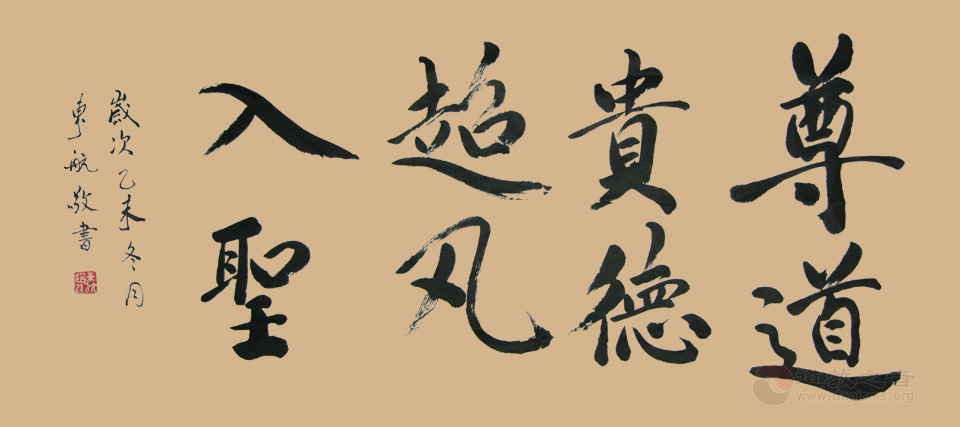 尊道
貴德
超凡
入聖
歲次乙未冬月
東航敬書
道教之音
www.daoisms.org